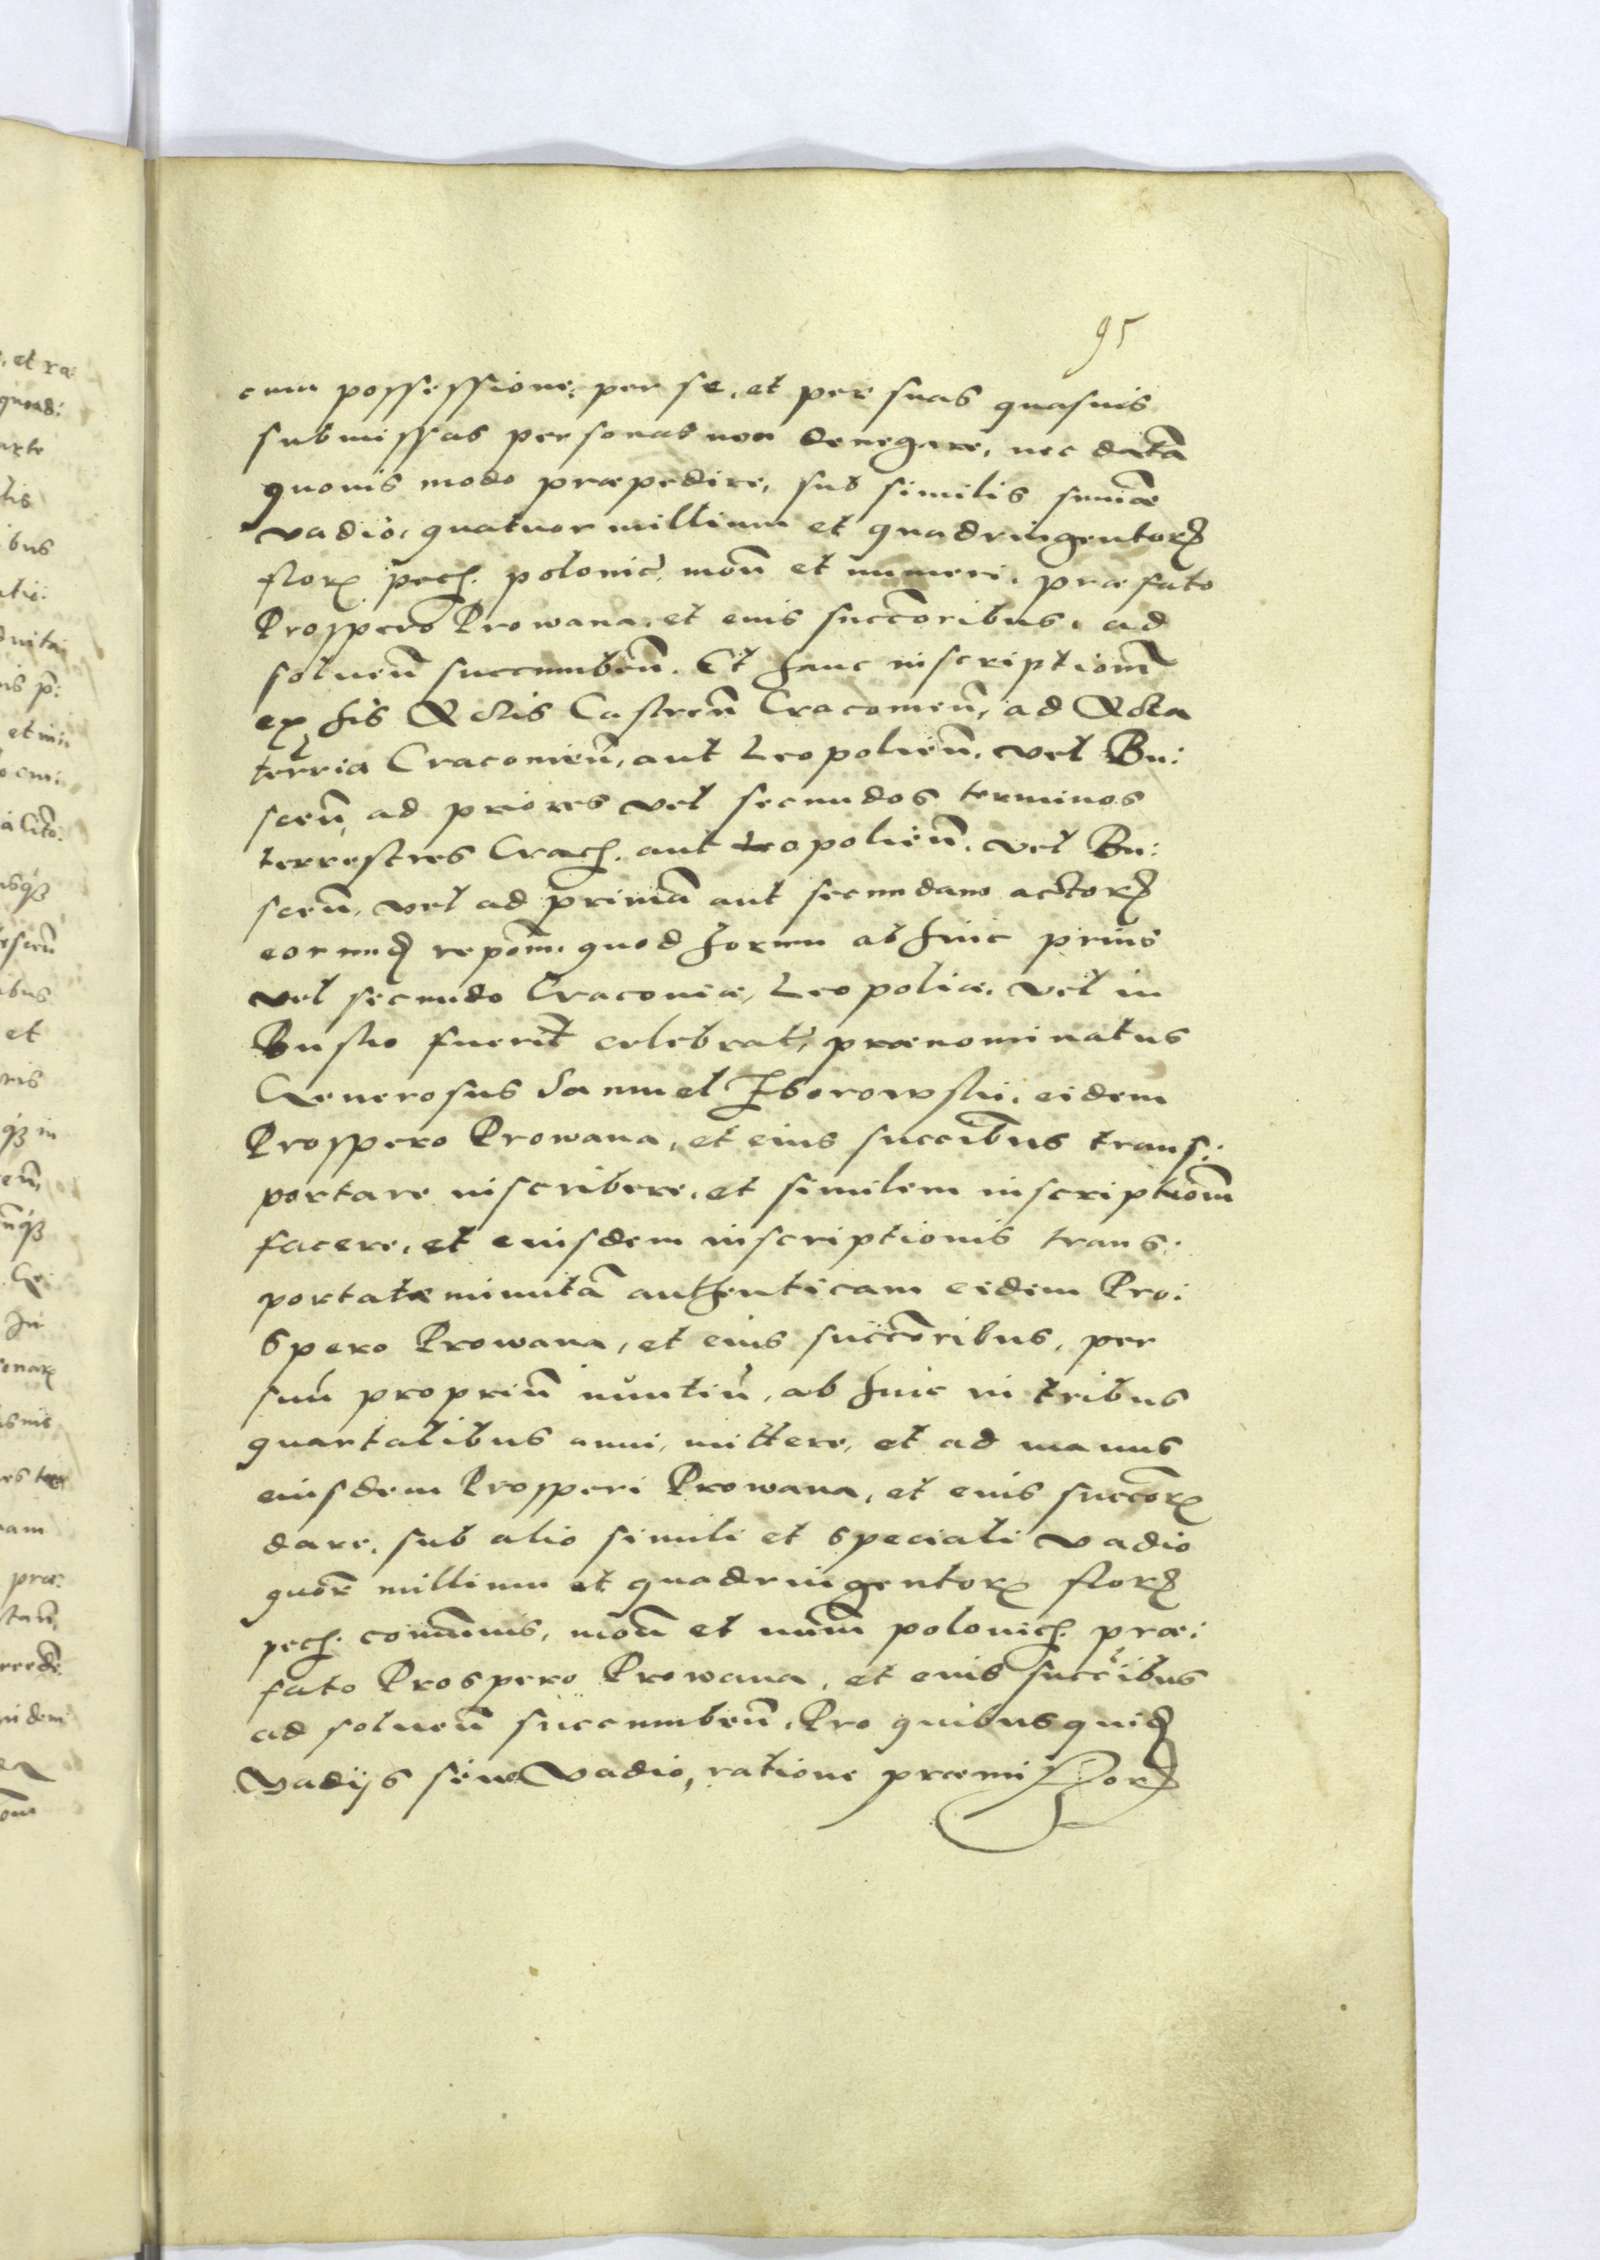 95
cum possessione, per se, et per suas quasuis
submissas personas non denegare, nec datã
quouis modo præpedire, sub similis sum̃æ
vadio, quatuor millium et quadringentorꝝ
florꝝ pech. polonic̃ mon̄ et numeri, præfato
Prospero Prowana, et eius succ̄oribus, ad
soluen̄ succumben̄. Et hanc inscriptionē
ex his Actis Castren̄ Cracouien̄, ad Acta
terr̄ia Cracouien̄, aut Leopolien̄, vel Bu:
scen̄, ad priores vel secundos terminos
terrestres Crach. aut Leopolien̄. vel Bu:
scen̄, vel ad primā aut secundam actorꝝ
eorund̄ repōm̄. quod horum ab hinc prius
vel secundo Cracouiæ, Leopoliæ, vel in
Busko fuerit̄ celebrat̄, prænominatus
Generosus Samuel Zborowski, eidem
Prospero Prowana, et eius succ̄ibus trans:
portare inscribere, et similem inscriptionē
facere, et eiusdem inscriptionis trans:
portatæ minutā authenticam eidem Pro:
spero Prowana, et eius succ̄oribus, per
suū propriū nuntiū, ab hinc in tribus
quartalibus anni, mittere, et ad manus
eiusdem Prosperi Prowana, et eius succ̄orꝝ
dare, sub alio simili et speciali vadio
quor̄ millium et quadringentorꝝ florꝝ
pech. com̄unis, mon̄ et num̄ polonich. præ:
fato Prospero Prowana, et eius succ̄ibus
ad soluen̄ succumben̄. Pro quibus quid̄
vadijs siue vadio, ratione præmissorꝝ